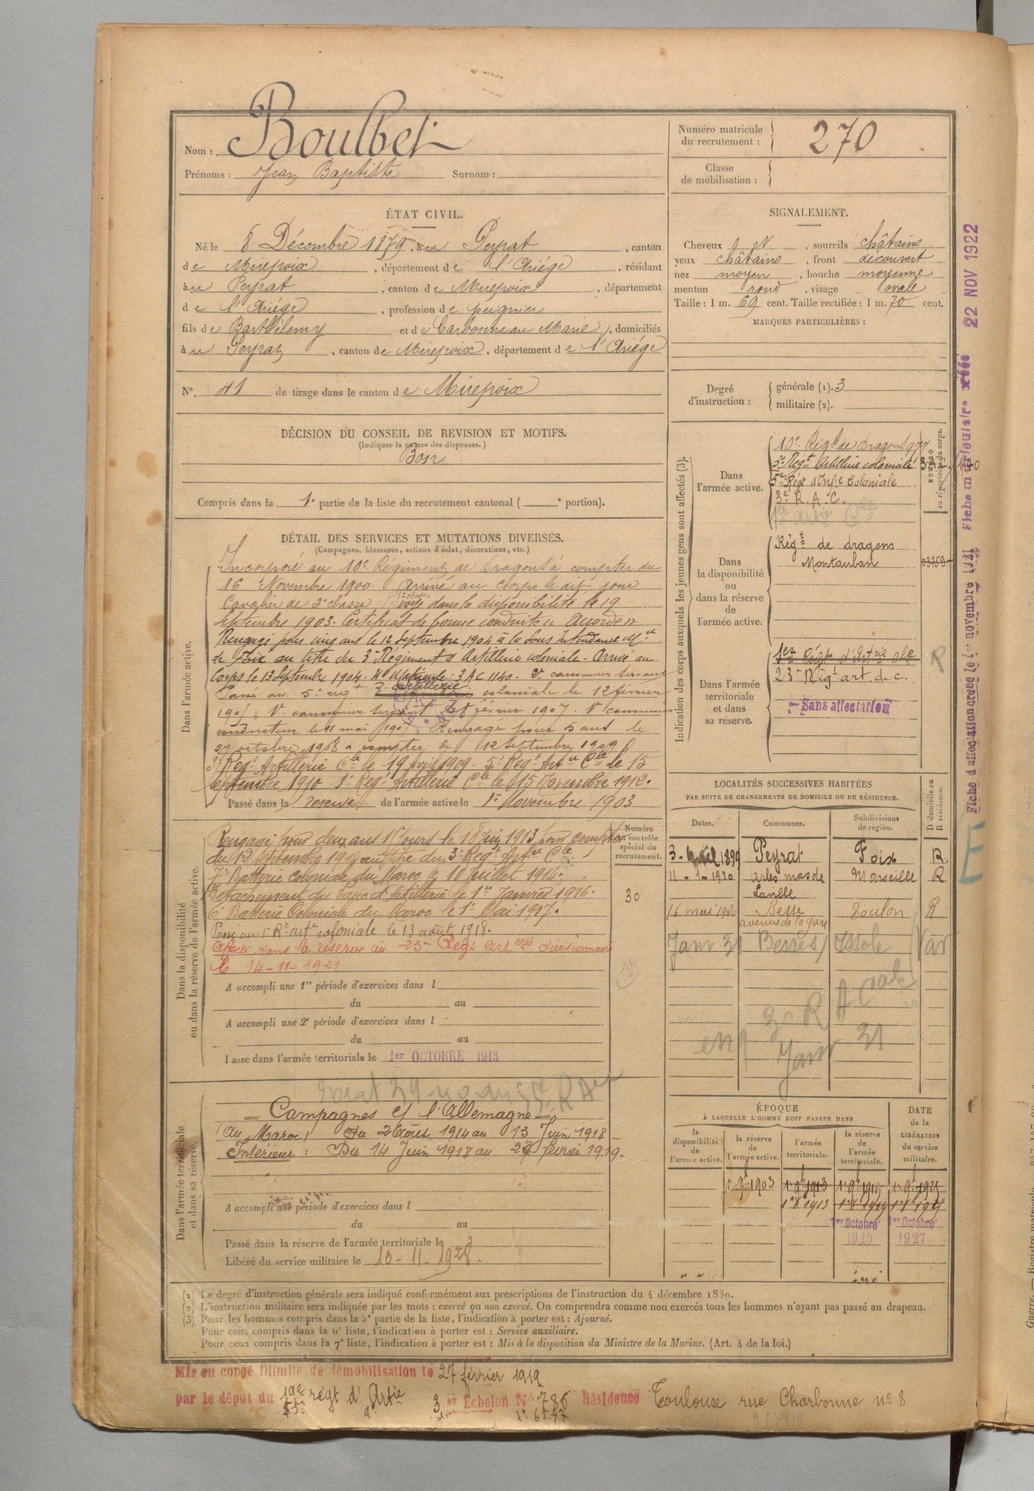 Nom : Boulbet
Prénoms : Jean Baptiste Surnom :
Numéro matricule du recrutement : 270
Classe de mobilisation :
ÉTAT CIVIL.
Né le 8 Décembre 1879, au Peyrat, canton
de Mirepoix, département de l'Ariège, résidant
à u Peyrat, canton de Mirepoix, département
de l'Ariège, profession de peignier
fils de Barthélemy et de Carbonneau Marie, domiciliés
à u Peyrat, canton de Mirepoix, département de l'Ariège
N° 41 de tirage dans le canton de Mirepoix
SIGNALEMENT.
Cheveux N, sourcils châtains
yeux châtains, front découvert
nez moyen, bouche moyenne
menton rond, visage ovale
Taille : 1 m. 69 cent. Taille rectifiée : 1 m. 70 cent.
MARQUES PARTICULIÈRES :
Degré d'instruction : générale (1). 3
militaire (2).
DÉCISION DU CONSEIL DE REVISION ET MOTIFS.
(Indiquer la nature des dispenses.)
Bon
Compris dans la 1e partie de la liste du recrutement cantonal ( portion).
Indication des corps auxquels les jeunes gens sont affectés (3).
Dans l'armée active.
10e Régt de dragons
3e Régt Artillerie coloniale
5e Régt d'Infie Coloniale
3e R. A. C.
Dans la disponibilité ou dans la réserve de l'armée active.
Régt de dragons
Montauban
Dans l'armée territoriale et dans sa réserve.
23e Régt art. d. c.
Sans affectation
R
Fiche d'affectation créée le 1er novembre 22 NOV 1922
DÉTAIL DES SERVICES ET MUTATIONS DIVERSES.
(Campagnes, blessures, actions d'éclat, décorations, etc.)
Dans l'armée active.
Incorporé au 10e Régiment de Dragons à compter du
16 Novembre 1900 Arrivé au corps le dit jour
Cavalier de 2e classe Envoyé dans la disponibilité le 19
Septembre 1903. Certificat de bonne conduite Accordé
Rengagé pour cinq ans le 12 Septembre 1904 à la Sous Intendance Mre
de Foix au titre du 3e Régiment d'Artillerie coloniale. Arrivé au
corps le 13 Septembre 1904. No Matricule : 3 AC 1140.
Passé au 5e régt d'artillerie coloniale le 12 février
1907
conducteur le 11 mai 1907. Rengagé pour 5 ans le
27 octobre 1908 à compter du 12 Septembre 1909
3e Régt Artillerie Cle le 19 Avril 1909. 5e Régt Artie Cle le 15
Septembre 1910 1er Régt Artillerie Cle le 15 Novembre 1912.
Passé dans la réserve de l'armée active le 1er Novembre 1903
Numéro au contrôle spécial du recrutement.
30
Dans la disponibilité ou dans la réserve de l'armée active.
Rengagé pour deux ans le 10 Juin 1913 pour compter
du 12 Septembre 1914 au titre du 3e Régt Artie Cle
7e Batterie Coloniale du Maroc le 10 Juillet 1914.
1er Janvier 1916.
6e Batterie Coloniale du Maroc le 1er Mai 1917.
Passé au 1er R. artie coloniale le 13 août 1918.
Affecté dans la réserve au 23e Régt Artie coloniale divisionnaire
le 14-11-1921
A accompli une 1re période d'exercices dans l
du au
A accompli une 2e période d'exercices dans l
du au
Passé dans l'armée territoriale le 1er OCTOBRE 1913
LOCALITÉS SUCCESSIVES HABITÉES
PAR SUITE DE CHANGEMENTS DE DOMICILE OU DE RÉSIDENCE.
Dates. Communes. Subdivisions de région. D domicile ou R résidence.
3 Avril 1899 Peyrat Foix R.
11-1-1920 Arles mas de Marseille R
16 mai 1920 Besse avenue de la gare Toulon R
Janv 31 Besse s/ Issole Var
Janv 31
Dans l'armée territoriale et dans sa réserve.
Campagnes c/ l'Allemagne
Au Maroc : Du 2 Août 1914 au 13 Juin 1918
Intérieur : Du 14 Juin 1918 au 27 février 1919.
A accompli une période d'exercices dans l
du au
Passé dans la réserve de l'armée territoriale le
Libéré du service militaire le 10-11-1928.
ÉPOQUE
À LAQUELLE L'HOMME DOIT PASSER DANS
la disponibilité de l'armée active. la réserve de l'armée active. l'armée territoriale. la réserve de l'armée territoriale. DATE de la LIBÉRATION du service militaire.
1er 9bre 1903 1er 9bre 1913 1er 9bre 1919 1er 9bre 1925
1er Octobre 1920 1er Octobre 1927
(1) Le degré d'instruction générale sera indiqué conformément aux prescriptions de l'instruction du 4 décembre 1889.
(2) L'instruction militaire sera indiquée par les mots : exercé ou non exercé. On comprendra comme non exercés tous les hommes n'ayant pas passé au drapeau.
(3) Pour les hommes compris dans la 5e partie de la liste, l'indication à porter est : Ajourné.
Pour ceux compris dans la 6e liste, l'indication à porter est : Service auxiliaire.
Pour ceux compris dans la 7e liste, l'indication à porter est : Mis à la disposition du Ministre de la Marine. (Art. 4 de la loi.)
Mis en congé illimité de démobilisation le 27 février 1919
par le dépôt du régt d'Artie 3 er Echelon No 786 Résidence Toulouse rue Charbonne no 8